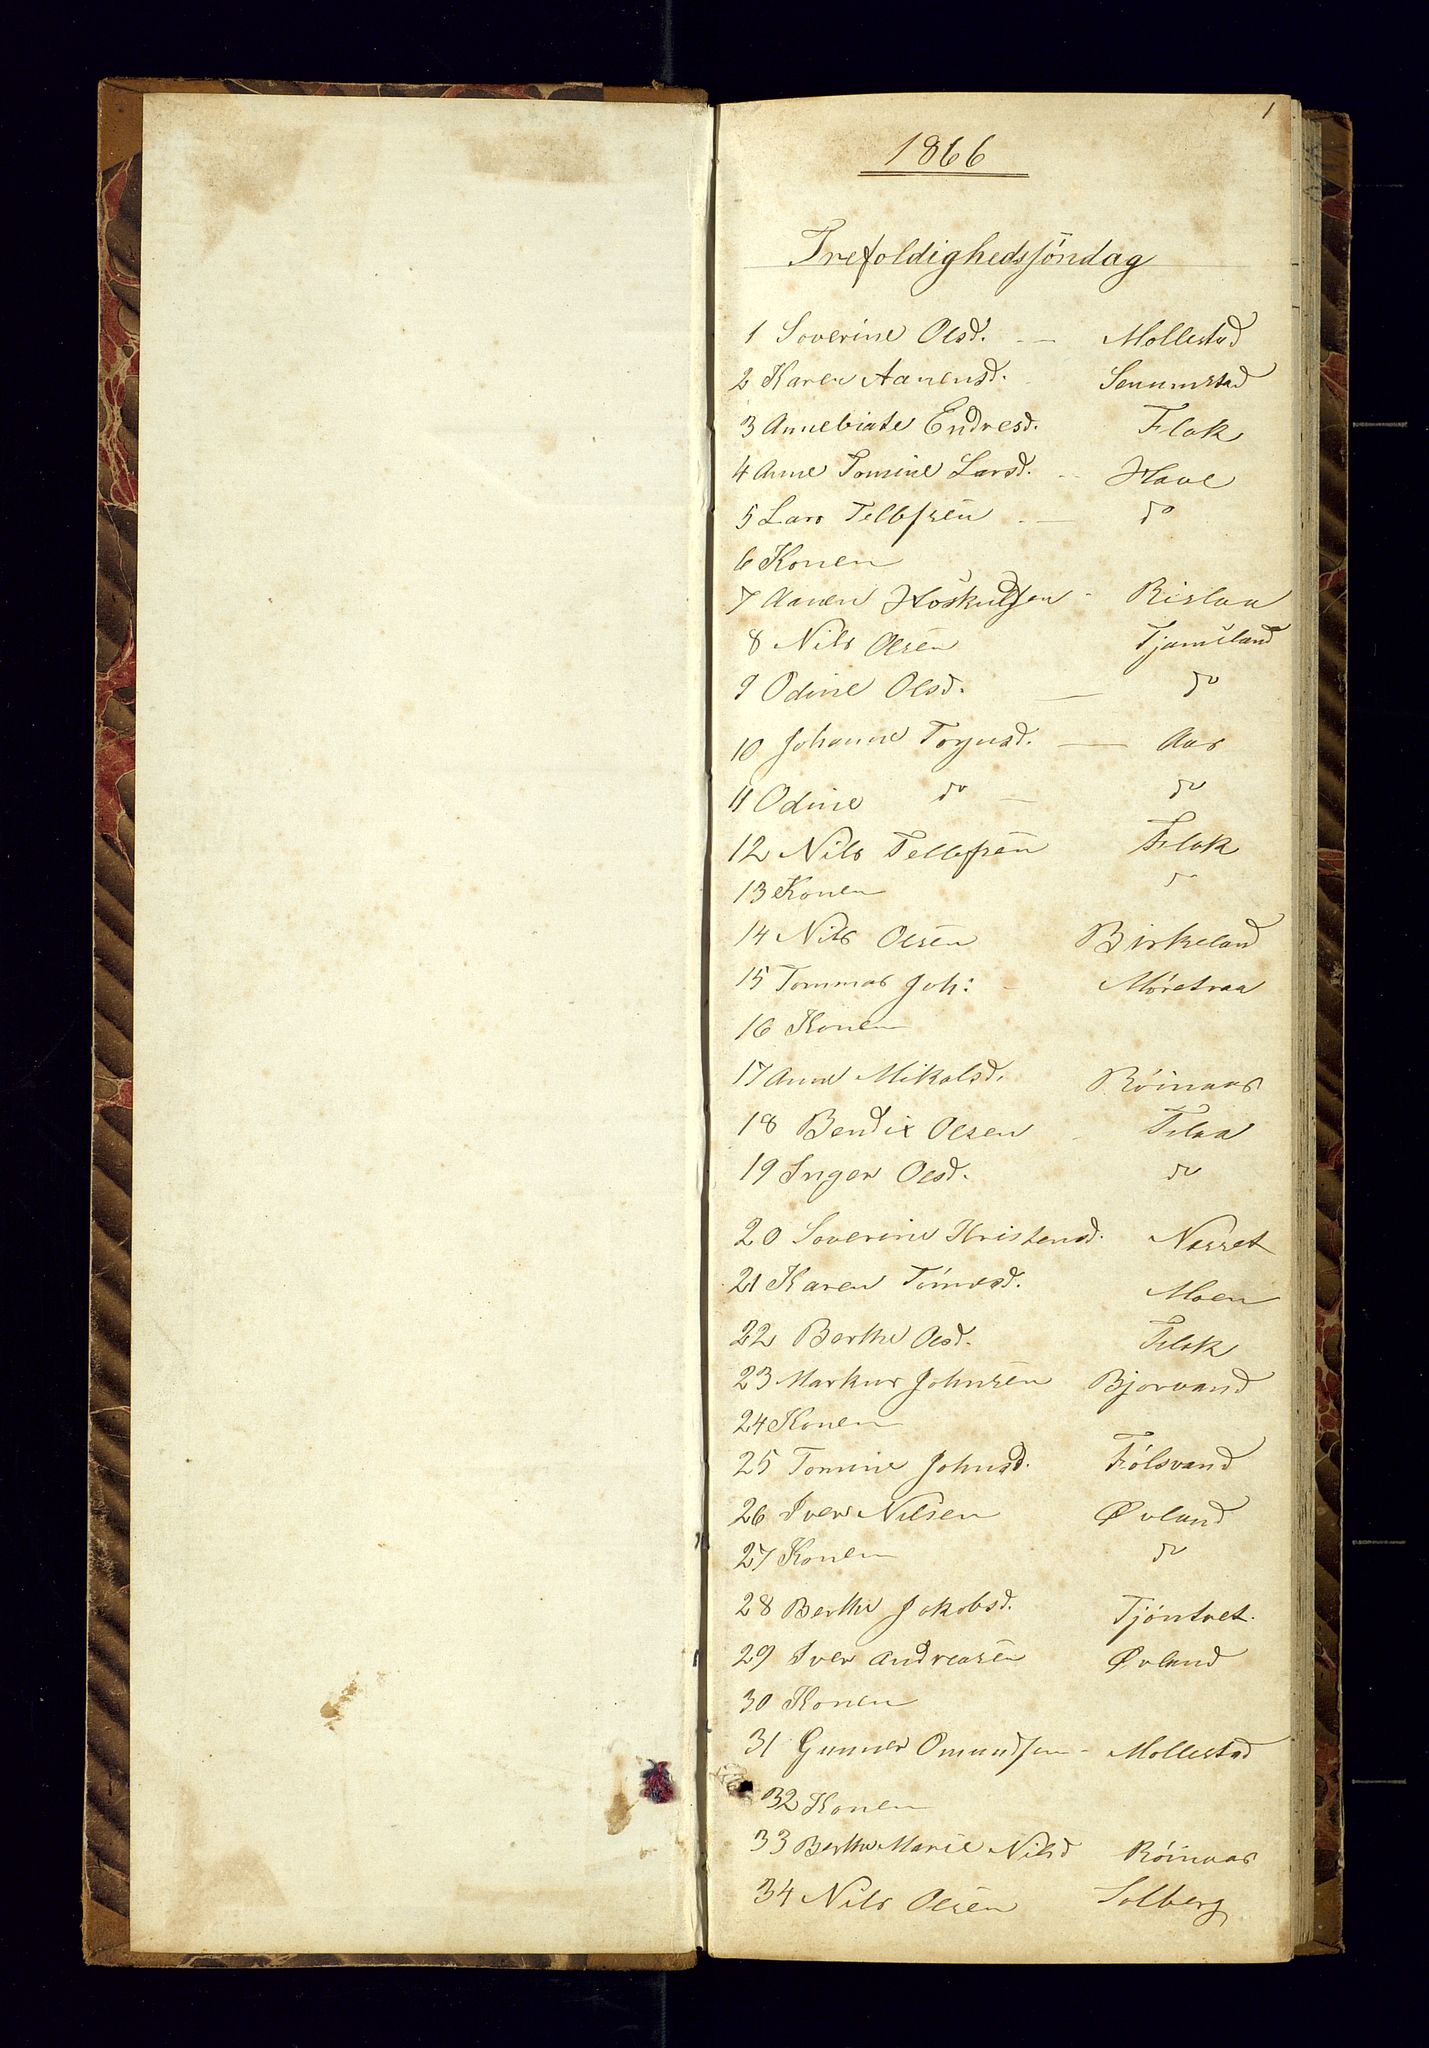 1
1866
Trefoldighedssöndag
1 Soverine Olsd. — Mollestad
2 Karen Aanensd. Senumstad
3 Annebiate Endresd. Flak
4 Anne Tomine Larsd. - Have
5 Lars Tellefsen — do
6 Konen
7 Aanen Höskulsen - Rislaa
8 Nils Olsen Tjamsland
9 Odine Olsd. — do
10 Johanne Torjusd. — Aas
11 Odine do — do
12 Nils Tellefsen Flak
13 Konen do
14 Nils Olsen Birkeland
15 Tommas Joh: - Móretraa
16 Konen
17 Anne Mikalsd. Róinaas
18 Bendix Olsen - Flaa
19 Inger Olsd. do
20 Soverine Kristensd. Nesset
21 Karen Tómesd. Moen
22 Berthe Olsd. Flak
23 Markus Johnsen Bjorvand
24 Konen
25 Tomine Johnsd. Fólsvand
26 Iver Nilsen Øvland
27 Konen do
28 Berthe Jakobsd. Tjöntvet.
29 Iver Andreasen Øvland
30 Konen
31 Gunner Omundsen - Mollestad
32 Konen
33 Berthe Marie Nilsd Róinaas
34 Nils Olsen Solberg